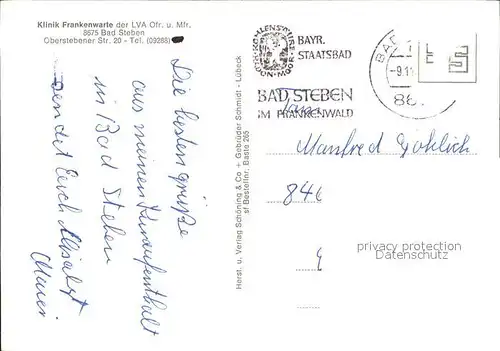 Klinik Frankenwarte der LVA Ofr. u. Mfr.
8675 Bad Steben
Oberstebener Str. 20 - Tel. (09288)
Die besten Grüße
aus meinem Kuraufenthalt
in Bad Steben
sendet Euch
Herst. u. Verlag Schöning & Co + Gebrüder Schmidt - Lübeck
sf Bestellnr. Badste 265
KOHLENSÄURE
RADON-MOOR
BAYR.
STAATSBAD
BAD STEBEN
IM FRANKENWALD
BAD
-9.11
86
Fam.
Manfred
846
privacy protection
Datenschutz